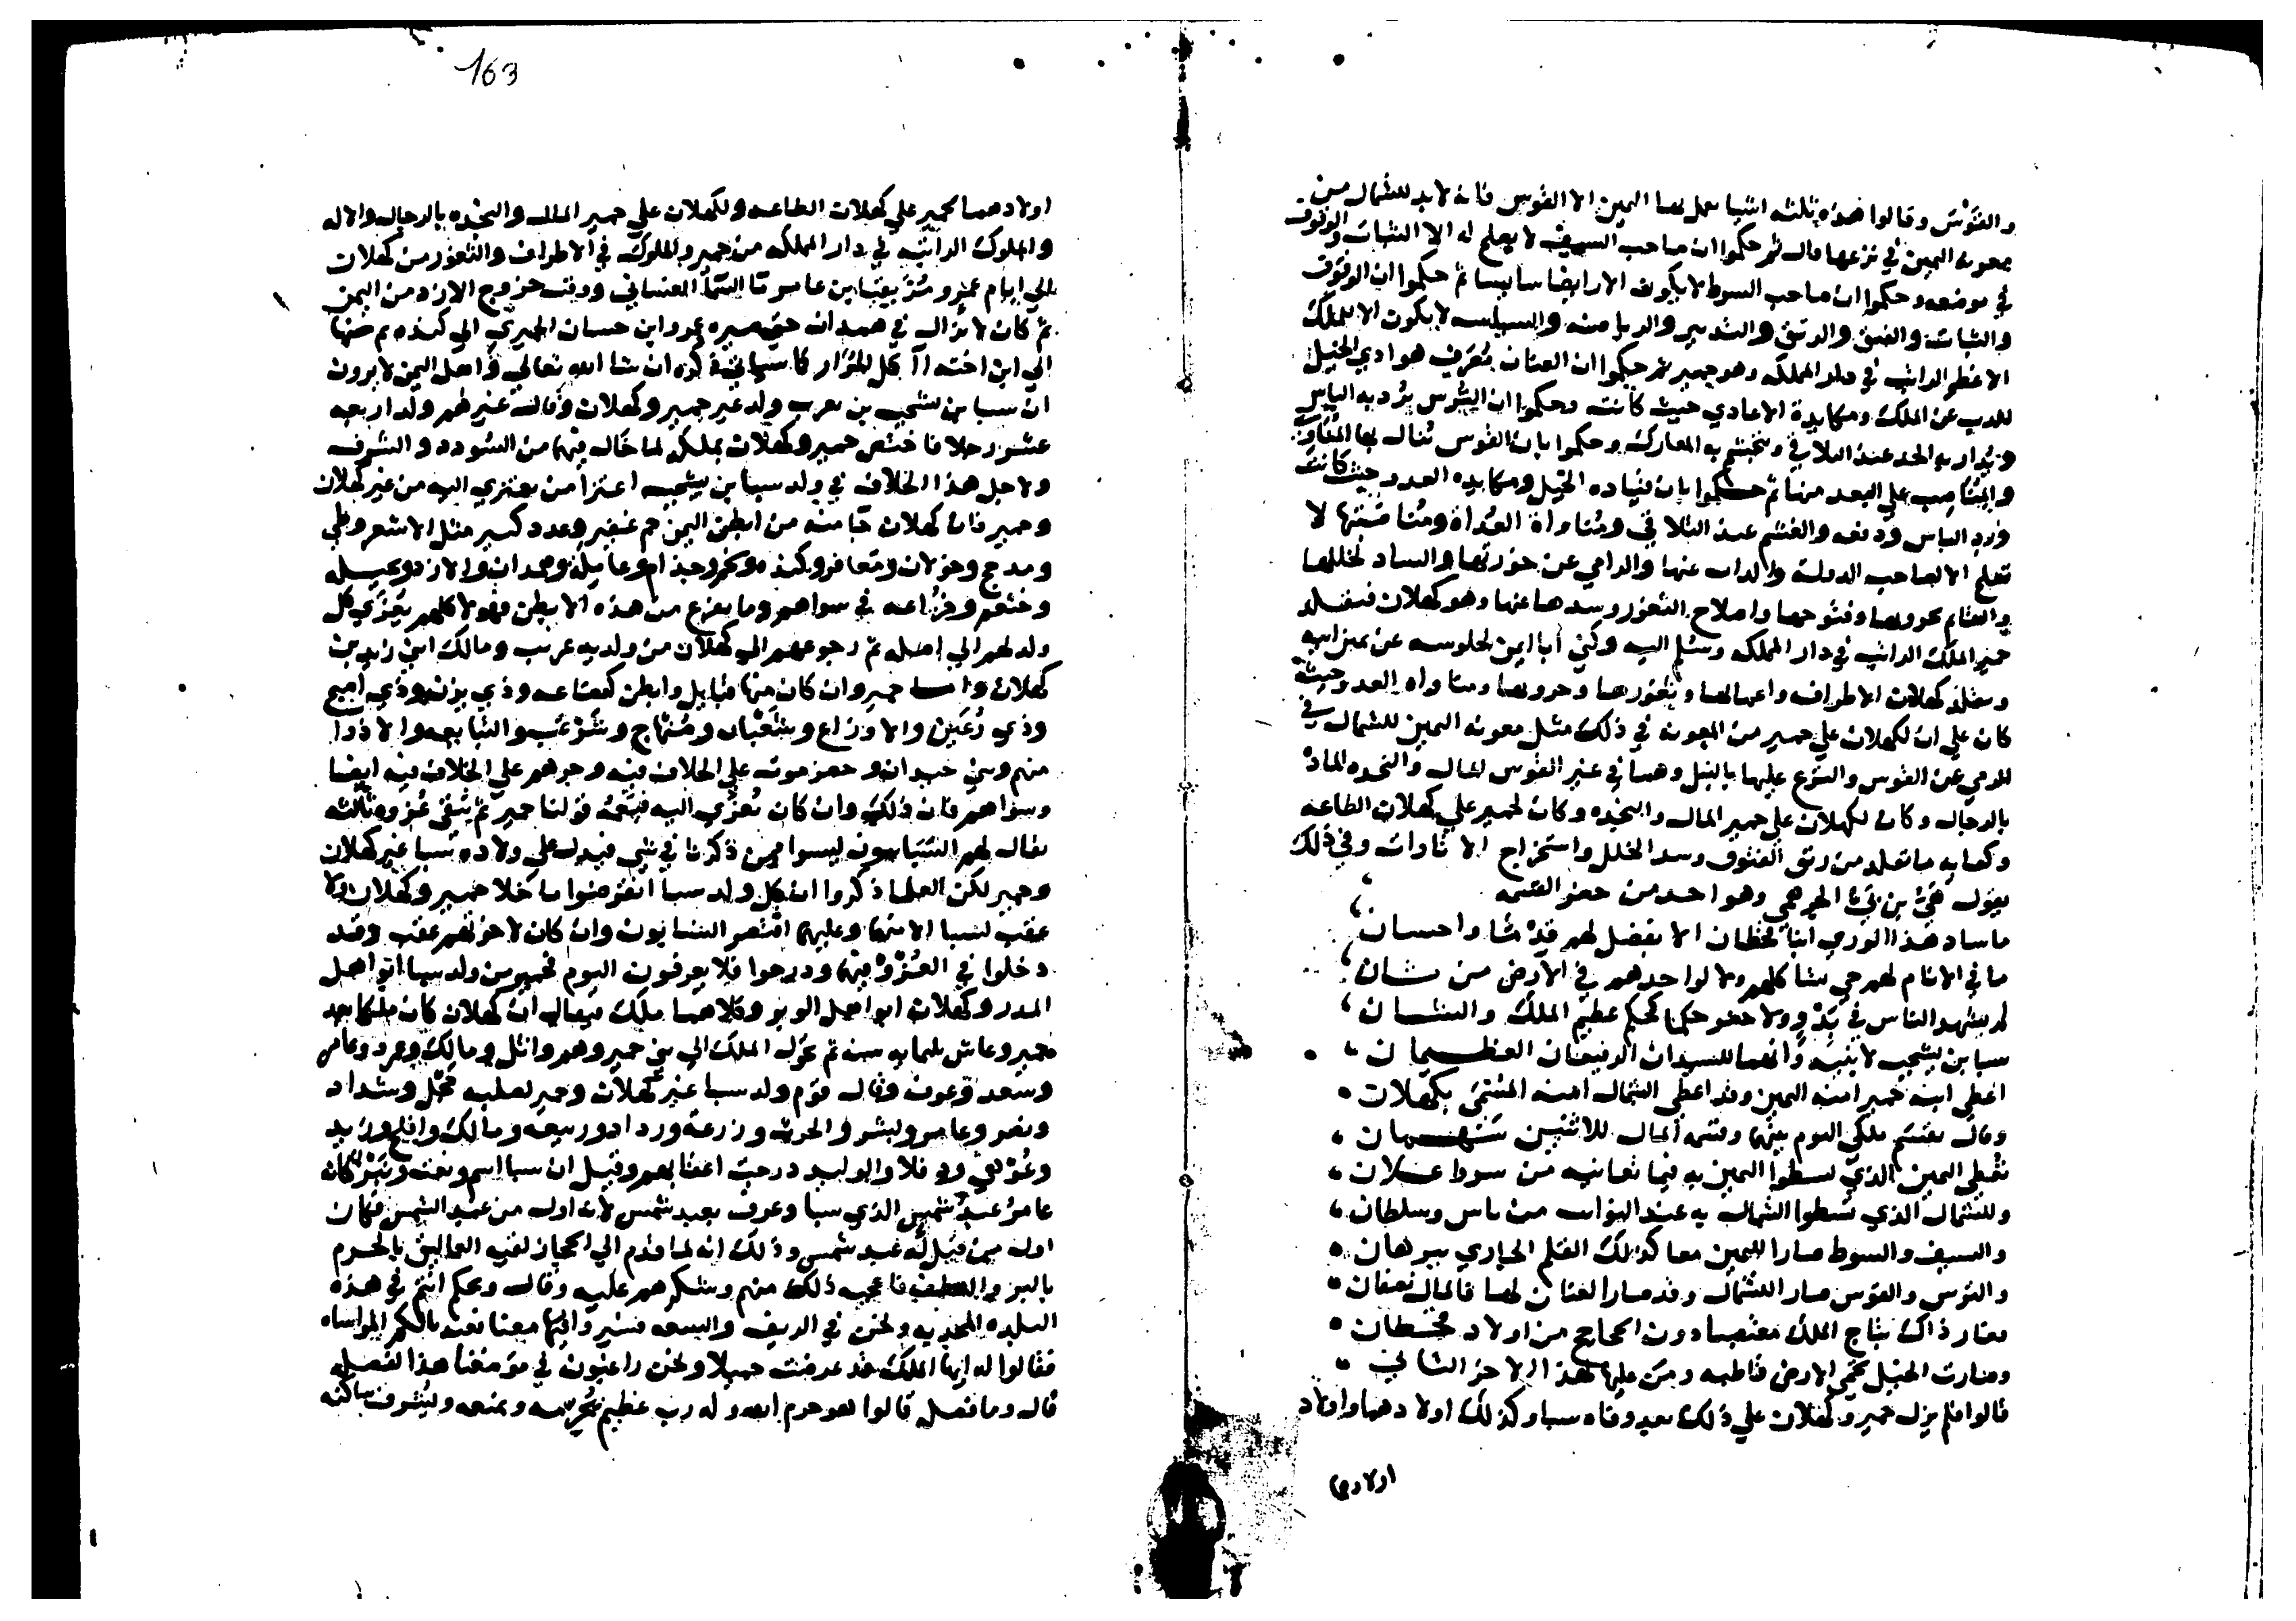 والقوس وقالوا هذه ثلثه اشيا يعمل بها اليمين الا القوس فانه لا بد للشمال من
معونه اليمين في نزعها قال ثم حكموا ان صاحب السيف لا يصلح له الا الثبات والوقوف
في موضعه وحكموا ان صاحب السوط لا يكون الا رايضا سايسا ثم حكموا ان الوقوف
والثبات والفتق والرتق والتدبير والرياضه والسياسه لا يكون الا للملك
الاعظم الراتب في دار المملكه وهو حمير ثم حكموا ان العنان يعرف هوادي الخيل
للذب عن الملك ومكايدة الاعادي حيث كانت وحكموا ان الترس يرد به الباس
ويدار به الحد عند التلاقي وحكموا بان القوس تنال بها
علي البعد منها ثم حكموا بان قياده الخيل ومكايده العدو حيث كانت
ورد الباس ودفعه عند التلاقي ومناواة العداة ومناصبتها لا
تصلح الا لصاحب الدولة والذاب عنها والرامي عن حوزتها والساد لخللها
والقيام بحروبها وفتوحها واصلاح الثغور وسدها عنها وهو كهلان فتقلد
حمير الملك الراتب في دار المملكه وسلم اليه وكني ابا ايمن لجلوسه عن يمين ابيه
وتقلد كهلان الاطراف واعمالها وثغورها وحروبها ومناواه العدو حيث
كان علي ان لكهلان علي حمير من المعونه في ذلك مثل معونه اليمين للشمال في
الرمي عن القوس والنزع عليها بالنبل وهما في غير القوس المال والنجده المادة
بالرجال وكان لكهلان علي حمير المال والنجده وكان لحمير علي كهلان الطاعه
وكفايه ما تقلد من رتق الفتوق وسد الخلل واستخراج الاتاوات وفي ذلك
يقول هي بن بي الجرهمي وهو احد من حضر القسمه
ما ساد هذا الوري ابنا قحطان الا بفضل لهم قدما واحسان
ما في الانام لهم حي سنا كلهم ولا لواحدهم في الارض من شان
لم يشهد الناس في بدو ولا حضر حكما كحكم عظيم الملك والشان
سبا بن يشجب لابنيه وانهما للسيدان الرفيعان العظيمان
اعطي ابنه حمير امنه اليمين وقد اعطي الشمال امنه المسمي بكهلان
وقال يقسم ملكي اليوم بينهما وقسمه المال للاثنين سهمان
تعطي اليمين الذي تسطوا اليمين به فيما تعانيه من سوط
وللشمال الذي تسطوا الشمال به عند النوايب من باس وسلطان
والسيف والسوط صارا لليمين معا كذلك القلم الجاري ببرهان
والترس والقوس صار للشمال وقد صار العنان لها فالمال نصفان
فصار ذاك بتاج الملك معتصبا دون الحجاج من اولاد قحطان
وصارت الخيل تحمي الارض قاطبه ومن عليها لهذا الاخر الثاني
قالوا فلم يزل حمير وكهلان علي ذلك بعد وفاه سبا وكذلك اولادهما واولاد
اولادهما
163
اولادهما لحمير علي كهلان الطاعه ولكهلان علي حمير المال والنجده بالرجال والاله
والملوك الراتبه في دار المملكه من حمير والملوك في الاطراف والثغور من كهلان
الي ايام عمرو مزيقيا بن عامر ما السما الغساني ووقت خروج الازد من اليمن
ثم كان لا يزال في همدان حتي صيره عمرو ابن حسان الحميري الي كنده ثم منها
الي ابن اخته آكل المرار كما سياتي ذكره ان شا الله تعالي واهل اليمن لا يرون
ان سبا بن يشجب بن يعرب ولد غير حمير وكهلان وقال غيرهم ولد اربعه
عشر رجلا فاختص حمير وكهلان بملكه لما خال فيهما من السودد والشرف
ولاجل هذا الخلاف في ولد سبا بن يشجب اعتزا من يعتزي اليه من غير كهلان
وحمير فان كهلان منه من ابطن اليمن جم غفير وعدد كثير مثل الاشعر وطي
ومدحج وخولان ومعافر وكنده ولخم وجذام وعامله وهمدان والازد وبجيله
وخثعم وخزاعه في سواهم وما يفرع من هذه الابطن فهولا كلهم يعزي كل
ولد لهم الي اصله ثم رجوعهم الي كهلان من ولديه عريب ومالك ابني زيد بن
كهلان واما حمير وان كان منها قبايل وابطن كقضاعه وذي يزن وذي اصبح
وذي رعين والاوزاع وشعبان والتبابعه والاذوا
منهم وبني حيدان وحضرموت علي الخلاف فيه وجرهم علي الخلاف فيه ايضا
وسواهم فان ذلك وان كان يعزي اليه
يقال لهم السبايون ليسوا ممن ذكرنا في شي فيدل علي ولاده سبا غير كهلان
وحمير لكن العلما ذكروا ان كل ولد سبا انقرضوا ما خلا حمير وكهلان ولا
عقب لسبا الا منهما وعليهما اقتصر النسابون وان كان لاخوتهم عقب وقد
دخلوا في فيهما ودرجوا فلا يعرفون اليوم فحمير من ولد سبا ابو اهل
المدر وكهلان ابو اهل الوبر وكلاهما ملك فيقال ان كهلان كان ملكا بعد
حمير وعاش ثلثمايه سنه ثم تحول الملك الي بني حمير وهم وائل ومالك وعمرو وعامر
وسعد وعوف وقال قوم ولد سبا غير كهلان وحمير لصلبه وشداد
ونصر وعامر وبشر والحرث وزرعة ورداد وربيعه ومالك وافلح وزيد
والوليد درجت اعقابهم وقيل ان سبا اسم ونعت كان
عامر عبد شمس الذي سبا وعرف بعبد شمس لانه اول من عبد الشمس فكان
اول من قيل له عبد شمس وذلك انه لما قدم الي الحجاز لقيه العماليق بالحرم
بالبر واللطف فاعجبه ذلك منهم وشكرهم عليه وقال ويحكم انتم في هذه
البلده المجدبه ونحن في الريف والسعه فسيروا معنا
فقالوا له ايها الملك قد عرضت جميلا ونحن راغبون في موضعنا هذا لفضله
قال وما فضله قالوا هو حرم الله وله رب عظيم يحرسه ويمنعه ويشرف ساكنه